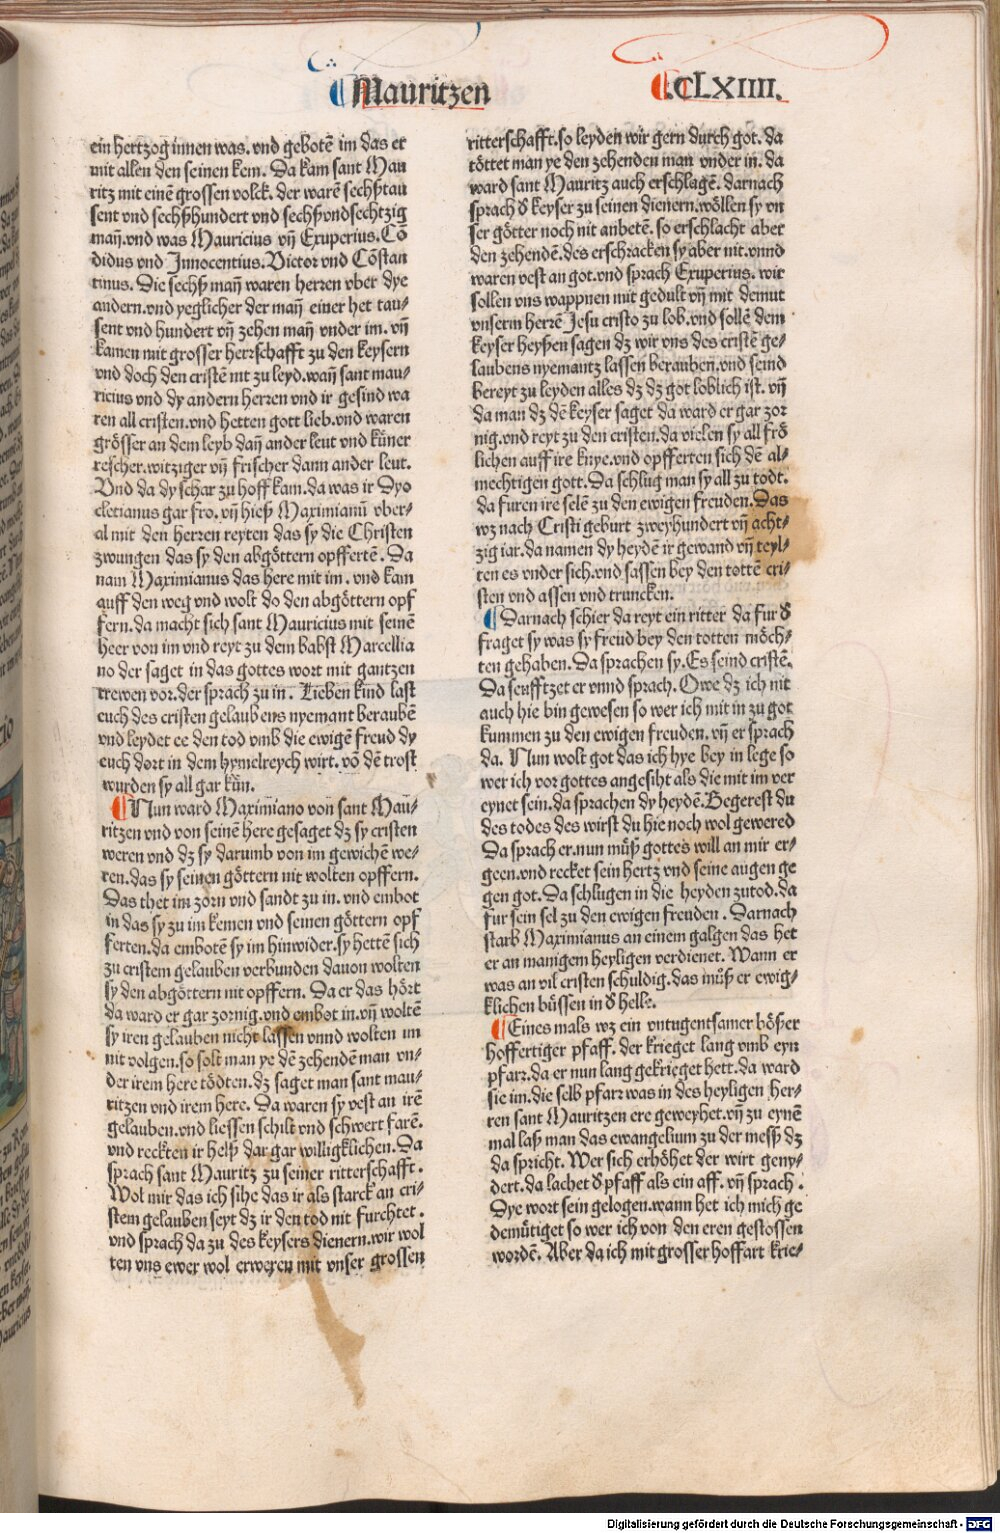 Mauritzen
CLXIIII.
ein hertzog innen was. vnd gebotē im das er
mit allen den seinen kem. Da kam sant Mau
ritz mit einē grossen volck. der warē sechßtau
sent vnd sechßhundert vnd sechßvndsechtzig
man̄. vnd was Mauricius vn̄ Exuperius. Cō
didus vnd Innocentius. Victor vnd Cōstan
tinus. Die sechß man̄ waren herren vber dye
andern. vnd yeglicher der man̄ einer het tau⸗
sent vnd hundert vn̄ zehen man̄ vnder im. vn̄
kamen mit grosser herrschafft zu den keysern
vnd doch den cristē nit zu leyd. wan̄ sant mau⸗
ricius vnd dy andern herren vnd ir gesind wa
ren all cristen. vnd hetten gott lieb. vnd waren
grösser an dem leyb dan̄ ander leut vnd küner
rescher. witziger vn̄ frischer dann ander leut.
Vnd da dy schar zu hoff kam. da was ir Dyo
cletianus gar fro. vn̄ hieß Maximianū vber⸗
al mit den herren reyten das sy die Christen
zwungen das sy den abgöttern opffertē. Da
nam Maximianus das here mit im. vnd kam
auff den weg vnd wolt do den abgöttern opf
fern. da macht sich sant Mauricius mit seinē
heer von im vnd reyt zu dem babst Marcellia
no der saget in das gottes wort mit gantzen
trewen vor. der sprach zu in. Lieben kind last
euch des cristen gelaubens nyemant beraubē
vnd leydet ee den tod vmb die ewigē freud dy
euch dort in dem hymelreych wirt. vō dē trost
wurden sy all gar kün.
Nun ward Maximiano von sant Mau⸗
ritzen vnd von seinē here gesaget dz sy cristen
weren vnd dz sy darumb von im gewichē we⸗
ren. das sy seinen göttern nit wolten opffern.
Das thet im zorn vnd sandt zu in. vnd embot
in das sy zu im kemen vnd seinen göttern opf
ferten. da embotē sy im hinwider. sy hettē sich
zu cristem gelauben verbunden dauon wolten
sy den abgöttern nit opffern. Da er das hört
da ward er gar zornig. vnd embot in. vn̄ woltē
sy iren gelauben nicht lassen vnnd wolten im
nit volgen. so solt man ye dē zehendē man vn⸗
der irem here tödten. dz saget man sant mau⸗
ritzen vnd irem here. Da waren sy vest an irē
gelauben. vnd liessen schilt vnd schwert farē.
vnd reckten ir helß dar gar willigklichen. Da
sprach sant Mauritz zu seiner ritterschafft.
Wol mir das ich sihe das ir als starck an cri⸗
stem gelauben seyt dz ir den tod nit furchtet.
vnd sprach da zu des keysers dienern. wir wol
ten vns ewer wol erweren mit vnser grossen
ritterschafft. so leyden wir gern durch got. da
töttet man ye den zehenden man vnder in. da
ward sant Mauritz auch erschlagē. darnach
sprach d̓ keyser zu seinen dienern. wöllen sy vn
ser götter noch nit anbetē. so erschlacht aber
den zehendē. des erschracken sy aber nit. vnnd
waren vest an got. vnd sprach Exuperius. wir
sollen vns wappnen mit gedult vn̄ mit demut
vnserm herrē Jesu cristo zu lob. vnd sollē dem
keyser heyßen sagen dz wir vns des cristē ge⸗
laubens nyemantz lassen berauben. vnd seind
bereyt zu leyden alles dz dz got loblich ist. vn̄
da man dz dē keyser saget da ward er gar zor
nig. vnd reyt zu den cristen. da vielen sy all frö
lichen auff ire knye. vnd opfferten sich dē al⸗
mechtigen gott. Da schlug man sy all zu todt.
da furen ire selē zu den ewigen freuden. Das
wz nach Cristi geburt zweyhundert vn̄ acht⸗
zig iar. da namen dy heydē ir gewand vn̄ teyl⸗
ten es vnder sich. vnd sassen bey den tottē cri⸗
sten vnd assen vnd truncken.
Darnach schier da reyt ein ritter da fur d̓
fraget sy was sy freud bey den totten möch⸗
ten gehaben. Da sprachen sy. Es seind cristē.
Da seufftzet er vnnd sprach. Owe dz ich nit
auch hie bin gewesen so wer ich mit in zu got
kummen zu den ewigen freuden. vn̄ er sprach
da. Nun wolt got das ich hye bey in lege so
wer ich vor gottes angesiht als die mit im ver
eynet sein. da sprachen dy heydē. Begerest du
des todes des wirst du hie noch wol gewered
Da sprach er. nun müß gottes will an mir er⸗
geen. vnd recket sein hertz vnd seine augen ge
gen got. Da schlugen in die heyden zutod. da
fur sein sel zu den ewigen freuden. Darnach
starb Maximianus an einem galgen das het
er an manigem heyligen verdienet. Wann er
was an vil cristen schuldig. das müß er ewig⸗
klichen büssen in d̓ helle.
Eines mals wz ein vntugentsamer bößer
hoffertiger pfaff. der krieget lang vmb eyn
pfarz. da er nun lang gekrieget hett. da ward
sie im. die selb pfarz was in des heyligen her⸗
ren sant Mauritzen ere geweyhet. vn̄ zu eynē
mal laß man das ewangelium zu der meß dz
da spricht. Wer sich erhöhet der wirt geny⸗
dert. da lachet d̓ pfaff als ein aff. vn̄ sprach.
Dye wort sein gelogen. wann het ich mich ge
demütiget so wer ich von den eren gestossen
wordē. Aber da ich mit grosser hoffart krie⸗
Digitalisierung gefördert durch die Deutsche Forschungsgemeinschaft - DFG